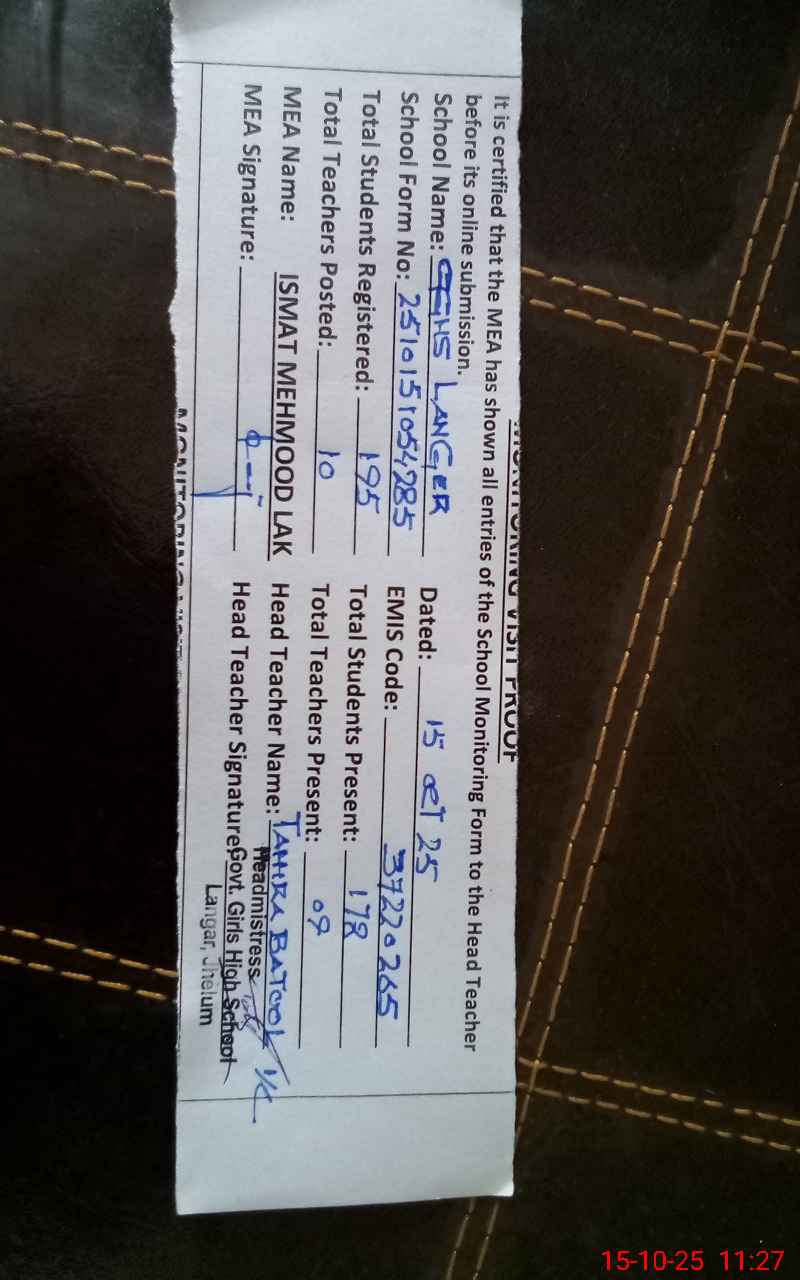 MONITORING VISIT PROOF
It is certified that the MEA has shown all entries of the School Monitoring Form to the Head Teacher
before its online submission.
School Name: GGHS LANGER Dated: 15 OCT 25
School Form No: 2510151054285 EMIS Code: 37220265
Total Students Registered: 195 Total Students Present: 178
Total Teachers Posted: 10 Total Teachers Present: 09
MEA Name: ISMAT MEHMOOD LAK Head Teacher Name: TAHIRA BATOOL I/C
MEA Signature: Head Teacher Signature:
Headmistress
Govt. Girls High School
Langar, Jhelum
MONITORING VISIT
15-10-25 11:27